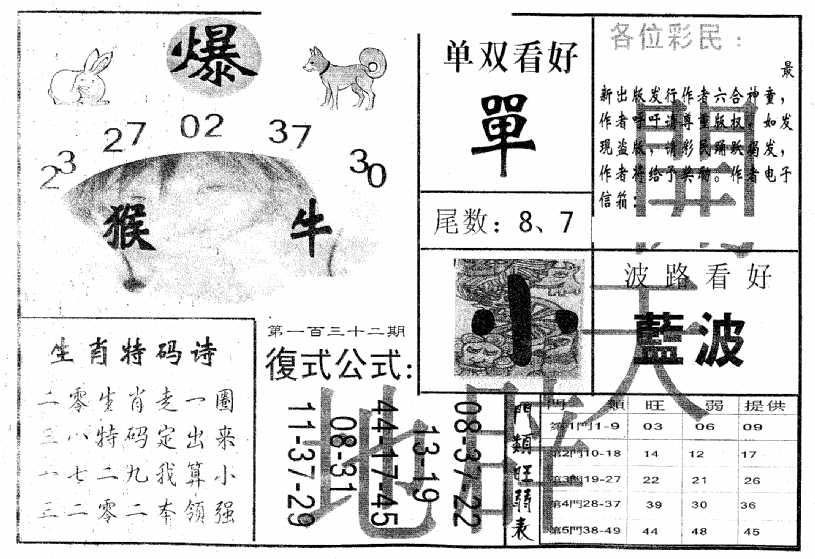 爆
23 27 02 37 30
猴 牛
单双看好
單
尾数：8、7
各位彩民：
最
新出版发行作者六合神童，
作者呼吁请尊重版权，如发
现盗版，请彩民踊跃揭发，
作者将给予奖励。作者电子
信箱：
開
天
地
小
波路看好
藍波
生肖特码诗
二零生肖走一圈
三八特码定出来
一七二九我算小
三二零二本领强
第一百三十二期
復式公式：
08-37-22
13-19
44-17-45
08-31
11-37-29
門類旺弱表
門 類 旺 弱 提供
第1門1-9 03 06 09
第2門10-18 14 12 17
第3門19-27 22 21 26
第4門28-37 39 30 36
第5門38-49 44 48 45